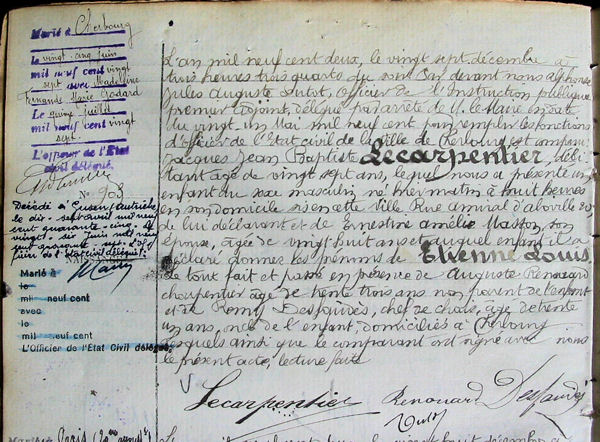 Marié à Cherbourg
le vingt-cinq juin
mil neuf cent vingt
sept avec Madeleine
Fernande Marie Godard
Le quinze juillet
mil neuf cent vingt
sept.
L'officier de l'Etat
civil délégué,
N° 908
Décédé à Gusen (Autriche)
le dix-sept avril mil neuf
cent quarante-cinq. Le
vingt-six juin mil neuf
cent quarante-sept. L'off
icier de l'Etat civil délégué.
Marié à
le
mil neuf cent
avec
le
mil neuf cent
L'Officier de l'Etat Civil délégué,
L'an mil neuf cent deux, le vingt sept décembre à
trois heures trois quarts du soir Par devant nous Alphonse
Jules Auguste Lutot, officier de l'Instruction publique
premier adjoint, délégué par arrêté de M. le Maire en date
du vingt un Mai mil neuf cent pour remplir les fonctions
d'officier de l'Etat civil de la ville de Cherbourg est comparu
Jacques Jean Baptiste Lecarpentier, débi
tant âgé de vingt sept ans, lequel nous a présenté un
enfant du sexe masculin né hier matin à huit heures
en son domicile sis en cette ville Rue amiral d'aboville 20
de lui déclarant et de Ernestine Amélie Masson, son
épouse, âgée de vingt huit ans et auquel enfant il a
déclaré donner les prénoms de Etienne Louis
de tout fait et passé en présence de Auguste Renouard
charpentier âgé de trente trois ans non parent de l'enfant
et de Remy Desfaudès, chef de chais, âgé de trente
un ans, oncle de l'enfant, domiciliés à Cherbourg
lesquels ainsi que le comparant ont signé avec nous
le présent acte, lecture faite
Lecarpentier Renouard Desfaudès
Lutot